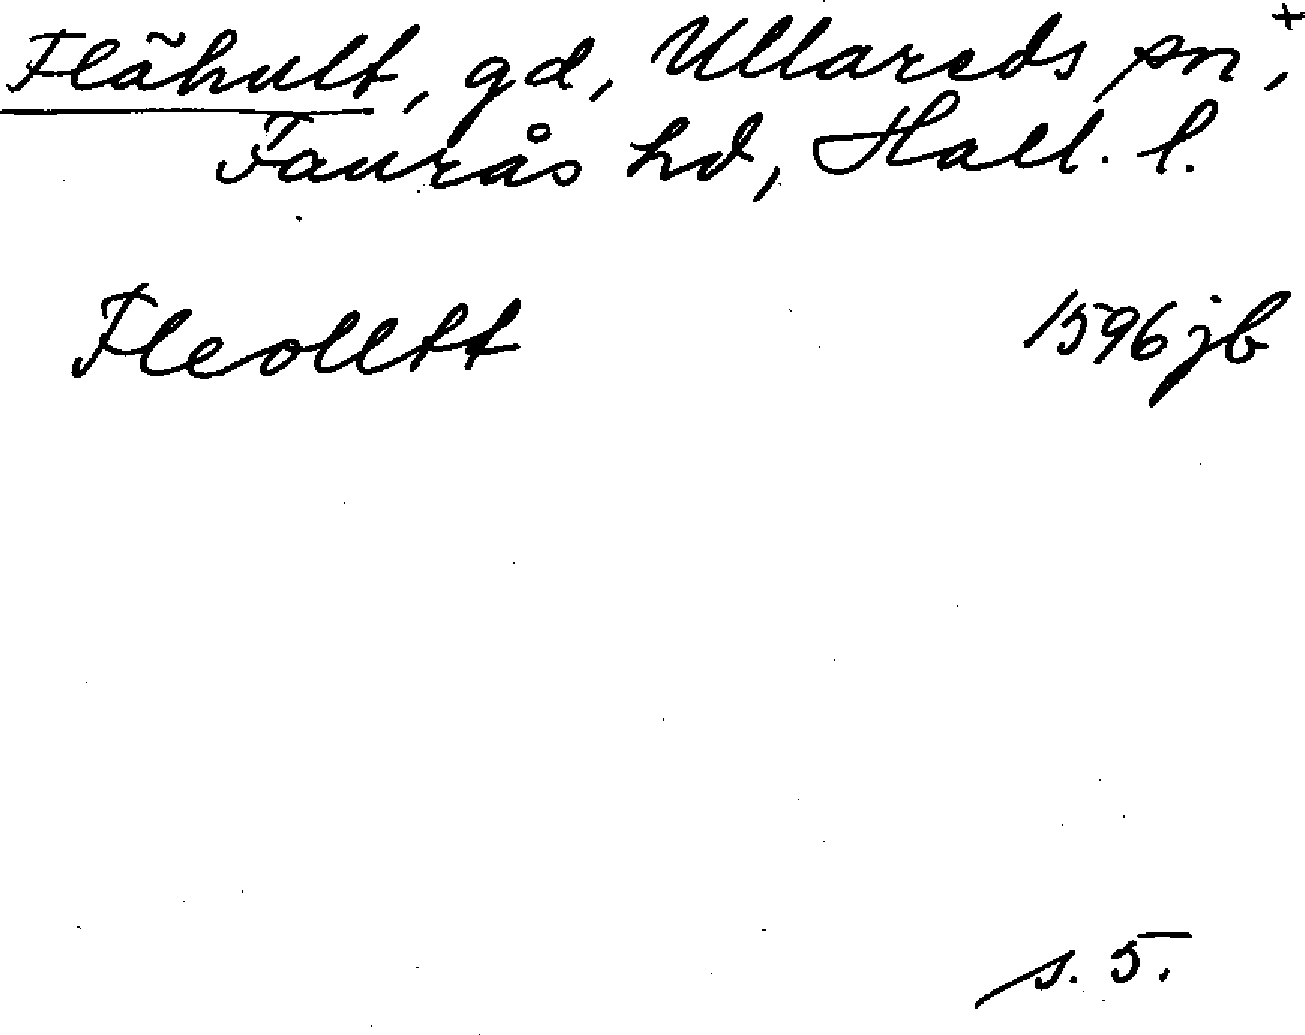 Flähult, gd, Ullareds sn, +
Faurås hd, Hall. l.
Fleolltt 1596 jb
s. 5.